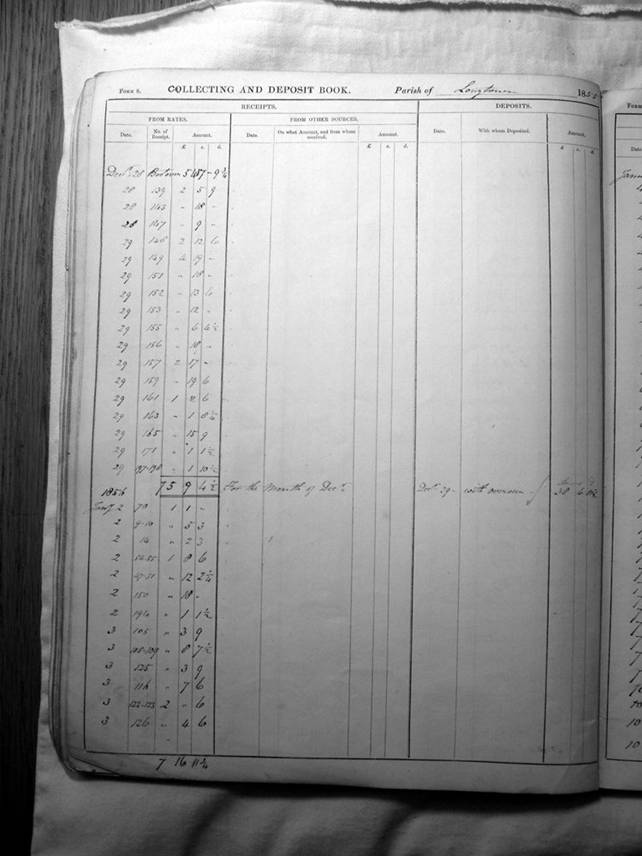 FORM 8. COLLECTING AND DEPOSIT BOOK. Parish of Longtown 185
RECEIPTS. DEPOSITS.
FROM RATES. FROM OTHER SOURCES.
Date. No. of Receipt. Amount. Date. On what Account, and from whom received. Amount. Date. With whom Deposited. Amount.
£ s. d. £ s. d. £ s. d.
28 139 2 5 9
28 143 " 18 -
28 147 " 9 -
29 146 2 12 6
29 149 4 19 -
29 151 " 18 -
29 152 " 13 6
29 153 " 12 -
29 155 " 6 6½
29 156 " 18 -
29 157 2 17 -
29 159 " 19 6
29 161 1 2 6
29 163 " 1 8¼
29 165 " 15 9
29 171 " 1 1½
29 " 1 10½
75 9 4½ For the Month of Decr Decr 29 - with overseer 38
1856
Jany 2 70 1 1 -
2 9-10 " 5 3
2 14 " 2 3
2 54-55 1 8 6
2 47-51 " 12 2¼
2 150 " 18 -
2 " 1 1½
3 105 " 3 9
3 " 8 7½
3 125 " 3 9
3 116 " 7 6
3 122-123 2 " 6
3 126 " 4 6
7 16 11¼